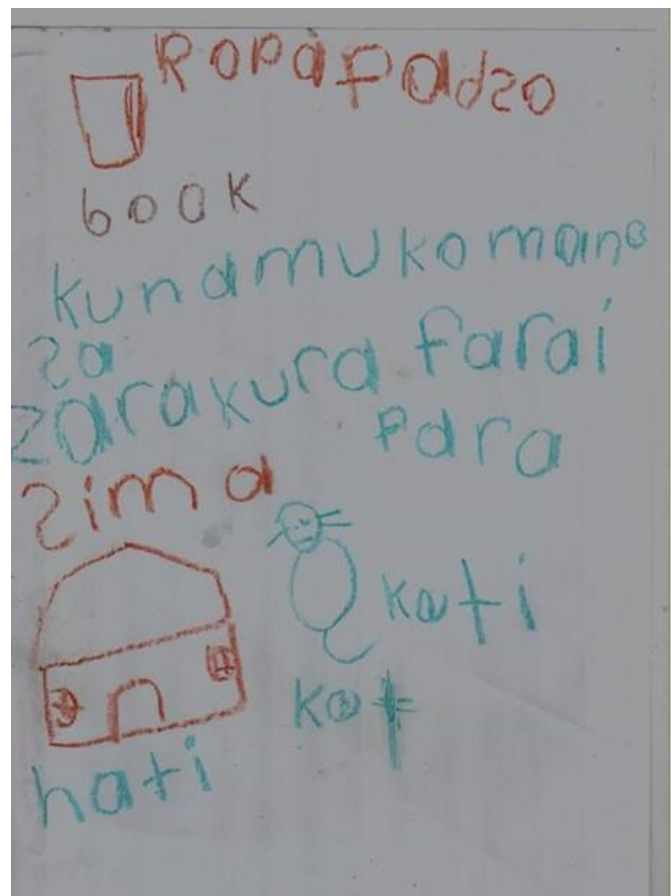 Ropafadzo
book
kunamukomana
za
zarakura farai
para
zima
kati
kat
hati